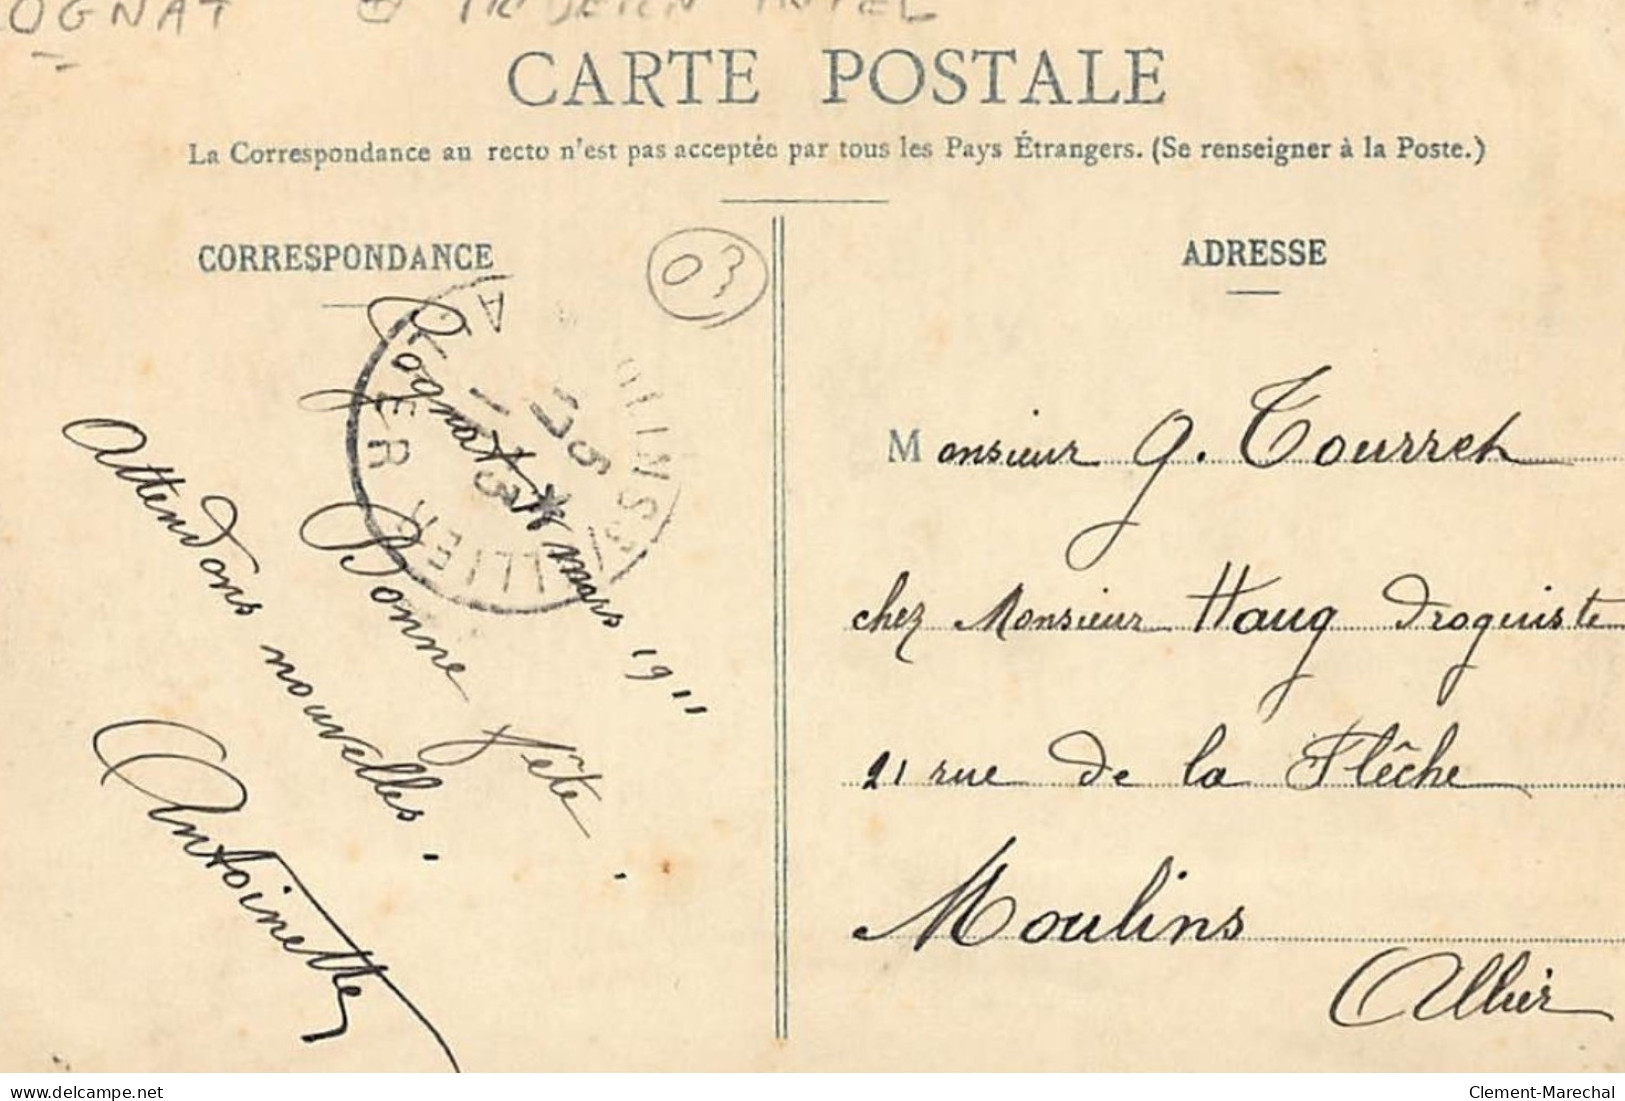 OGNAT
CARTE POSTALE
La Correspondance au recto n'est pas acceptée par tous les Pays Étrangers. (Se renseigner à la Poste.)
CORRESPONDANCE
03
Cognat mars 1911
Bonne fête.
Attendons nouvelles.
Antoinette
ALLIER
ADRESSE
Monsieur G. Tourret
chez Monsieur Haug Droguiste
21 rue de la Flêche
Moulins
Allier
delcampe.net
Clement-Marechal